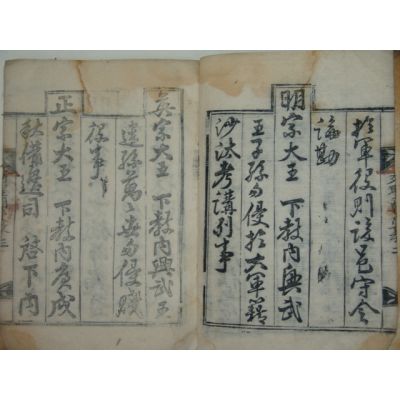 於軍役則該邑守令
論勘
明宗大王 下教內興武
王子孫勿侵於大軍籍
沙汰考講事
英宗大王 下教內興武王
遠孫萬世勿侵賤
役事
正宗大王 下教內庚戌
秋備邊司 啓下內